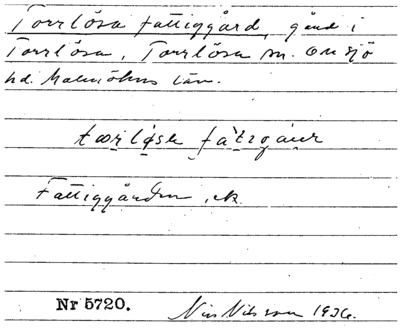 Torrlösa fattiggård, gård i
Torrlösa, Torrlösa sn. Onsjö
hd. Malmöhus län.
Fattiggården, ek.
Nr 5720. Nils Nilsson 1936.